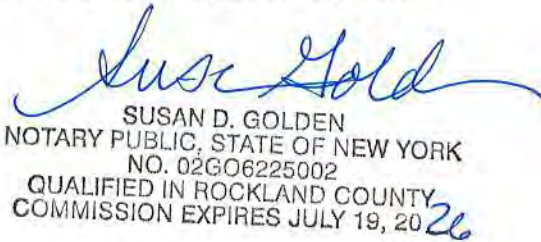 Susan Gold
SUSAN D. GOLDEN
NOTARY PUBLIC, STATE OF NEW YORK
NO. 02GO6225002
QUALIFIED IN ROCKLAND COUNTY
COMMISSION EXPIRES JULY 19, 2026